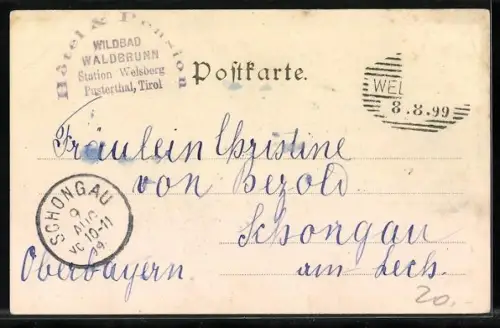 Hôtel & Pension
WILDBAD
WALDBRUNN
Station Welsberg
Pusterthal, Tirol
Postkarte.
WEL
8.8.99
Fräulein Christine
von Bezold
SCHONGAU
9
AUG
VC 10-11
9
Schongau
Oberbayern.
am Lech.
20.-